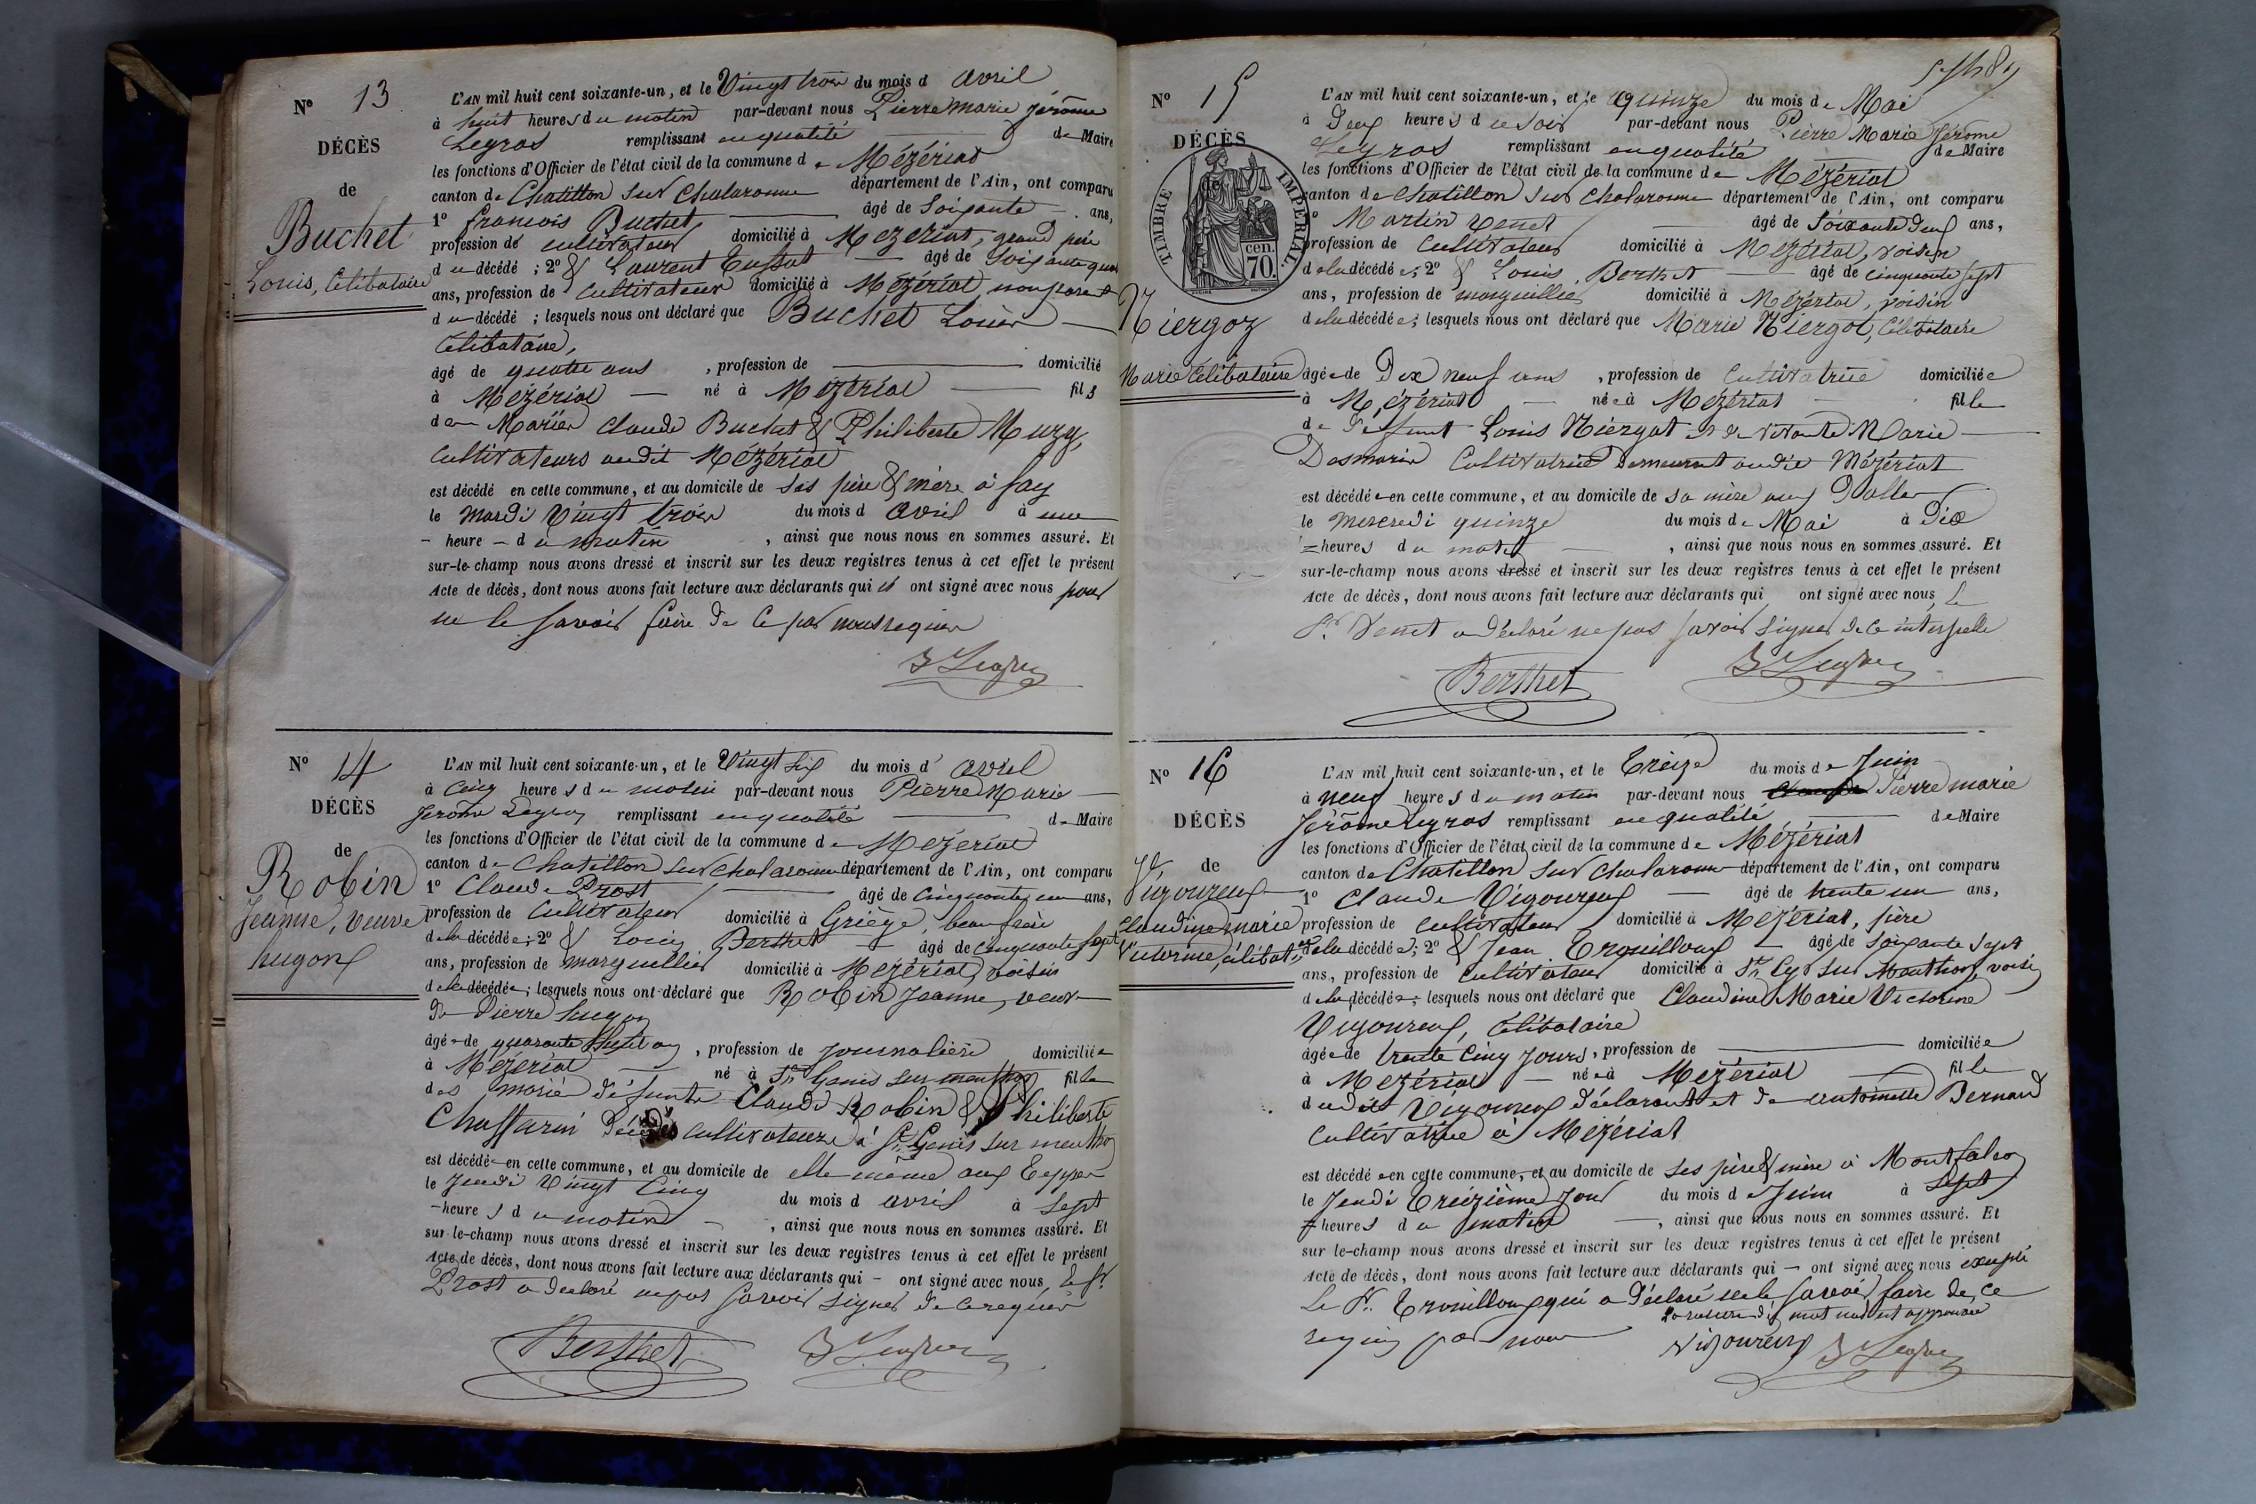 Nº 13
DÉCÈS
de
Buchet
Louis, Célibataire
L'AN mil huit cent soixante-un, et le Vingt trois du mois d avril
à huit heures du matin par-devant nous Pierre Marie Jérôme
Legras remplissant en qualité de Maire
les fonctions d'Officier de l'état civil de la commune de Mézériat
canton de Chatillon sur Chalaronne département de l'Ain, ont comparu
1º francois Buchet âgé de Soixante ans,
profession de cultivateur domicilié à Mezeriat, grand père
du décédé ; 2º & Laurent âgé de Soixante
ans, profession de Cultivateur domicilié à Mézériat non parent
du décédé ; lesquels nous ont déclaré que Buchet Louis
Célibataire,
âgé de quatre ans , profession de domicilié
à Mézériat né à Mézériat fils
de Mariés Claude Buchet & Philiberte Muzy,
Cultivateurs audit Mézériat
est décédé en cette commune, et au domicile de ses père & mère à fay
le Mardi Vingt trois du mois d avril à une
heure du matin , ainsi que nous nous en sommes assuré. Et
sur-le-champ nous avons dressé et inscrit sur les deux registres tenus à cet effet le présent
Acte de décès, dont nous avons fait lecture aux déclarants qui ont signé avec nous pour
ne le savoir faire de ce par nous requis
Nº 14
DÉCÈS
de
Robin
Jeanne, Veuve
hugon
L'AN mil huit cent soixante-un, et le Vingt six du mois d' avril
à Cinq heures du matin par-devant nous Pierre Marie
Jerome Legras remplissant en qualité de Maire
les fonctions d'Officier de l'état civil de la commune de Mézériat
canton de Chatillon sur Chalaronne département de l'Ain, ont comparu
1º Claude Prost âgé de cinquante un ans,
profession de Cultivateur domicilié à Griège, beau frère
de la décédée ; 2º & Louis Berthet âgé de Cinquante sept
ans, profession de marguillier domicilié à Mézériat, voisin
de la décédée ; lesquels nous ont déclaré que Robin Jeanne, veuve
de Pierre hugon
âgée de quarante huit ans , profession de journalière domiciliée
à Mézériat né à St. Genis sur menthon fille
des mariés défunts Claude Robin & Philiberte
décédés cultivateurs à St. Genis sur menthon
est décédée en cette commune, et au domicile de elle même aux
le Jeudi Vingt Cinq du mois d avril à Sept
heures du matin , ainsi que nous nous en sommes assuré. Et
sur le-champ nous avons dressé et inscrit sur les deux registres tenus à cet effet le présent
Acte de décès, dont nous avons fait lecture aux déclarants qui ont signé avec nous, le Sr.
Prost a déclaré ne pas savoir signer de ce requis
Berthet
Nº 15
DÉCÈS
de
TIMBRE IMPÉRIAL.
70 cen.
Niergoz
Marie Célibataire
L'AN mil huit cent soixante-un, et le quinze du mois de Mai
à Deux heures du soir par-devant nous Pierre Marie Jérôme
Legras remplissant en qualité de Maire
les fonctions d'Officier de l'état civil de la commune de Mézériat
canton de Chatillon sur Chalaronne département de l'Ain, ont comparu
1º Martin Venet âgé de Soixante Deux ans,
profession de Cultivateur domicilié à Mézériat, voisin
de la décédée ; 2º & Louis Berthet âgé de cinquante sept
ans, profession de marguillier domicilié à Mézériat, voisin
de la décédée ; lesquels nous ont déclaré que Marie Niergot, Célibataire
âgée de Dix neuf ans , profession de Cultivatrice domiciliée
à Mézériat née à Mézériat fille
de Défunt Louis Niergot et de vivante Marie
Desmaris Cultivatrice Demeurant audit Mézériat
est décédée en cette commune, et au domicile de sa mère aux
le Mercredi quinze du mois de Mai à Dix
heures du matin , ainsi que nous nous en sommes assuré. Et
sur-le-champ nous avons dressé et inscrit sur les deux registres tenus à cet effet le présent
Acte de décès, dont nous avons fait lecture aux déclarants qui ont signé avec nous, le
Sr. Venet a déclaré ne pas savoir signer de ce interpellé
Berthet
Nº 16
DÉCÈS
de
Vigoureux
Claudine marie
Victorine, célibat.re
L'AN mil huit cent soixante-un, et le Treize du mois de Juin
à neuf heures du matin par-devant nous Pierre marie
Jérôme Legras remplissant en qualité de Maire
les fonctions d'Officier de l'état civil de la commune de Mézériat
canton de Chatillon sur Chalaronne département de l'Ain, ont comparu
1º Claude Vigoureux âgé de trente un ans,
profession de cultivateur domicilié à Mézériat, père
de la décédée ; 2º & Jean Trouilloux âgé de soixante sept
ans, profession de Cultivateur domicilié à St. Cyr sur Menthon, voisin
de la décédée ; lesquels nous ont déclaré que Claudine Marie Victorine
Vigoureux, Célibataire
âgée de trente Cinq Jours , profession de domiciliée
à Mézériat née à Mézériat fille
dudit Vigoureux déclarant et de antoinette Bernard
Cultivatrice à Mézériat
est décédée en cette commune, et au domicile de ses père & mère à Montfalcon
le Jeudi Treizième Jour du mois de Juin à Sept
heures du matin , ainsi que nous nous en sommes assuré. Et
sur le-champ nous avons dressé et inscrit sur les deux registres tenus à cet effet le présent
Acte de décès, dont nous avons fait lecture aux déclarants qui ont signé avec nous excepté
Le Sr. Trouilloux qui a déclaré ne le savoir faire de ce
La rature d'un mot nul est approuvée
requis par nous
Vigoureux